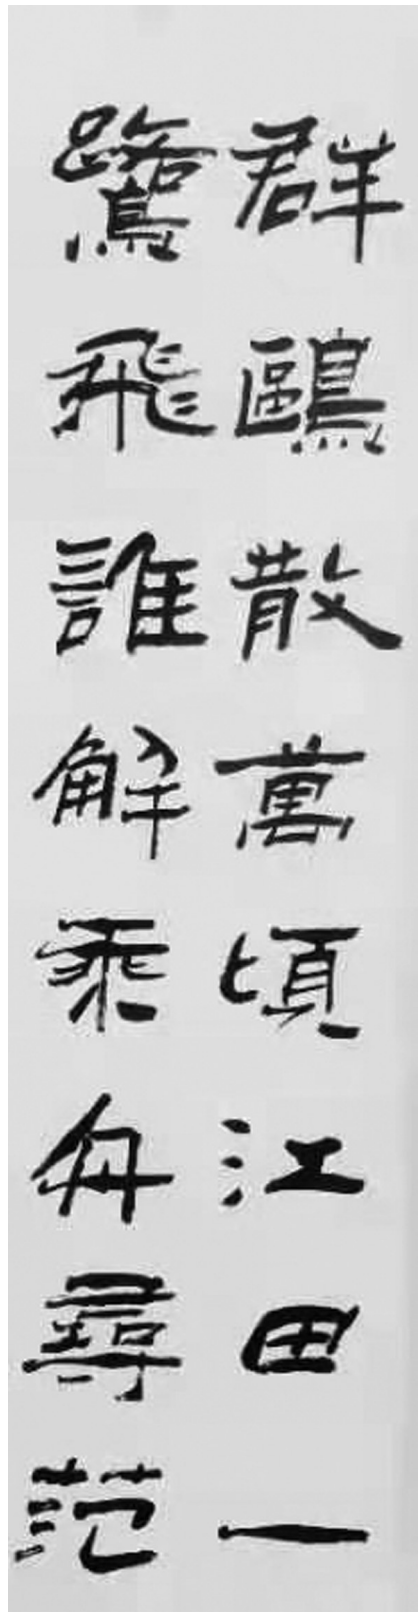 群鷗散萬頃江田一
鷺飛誰解乘舟尋范